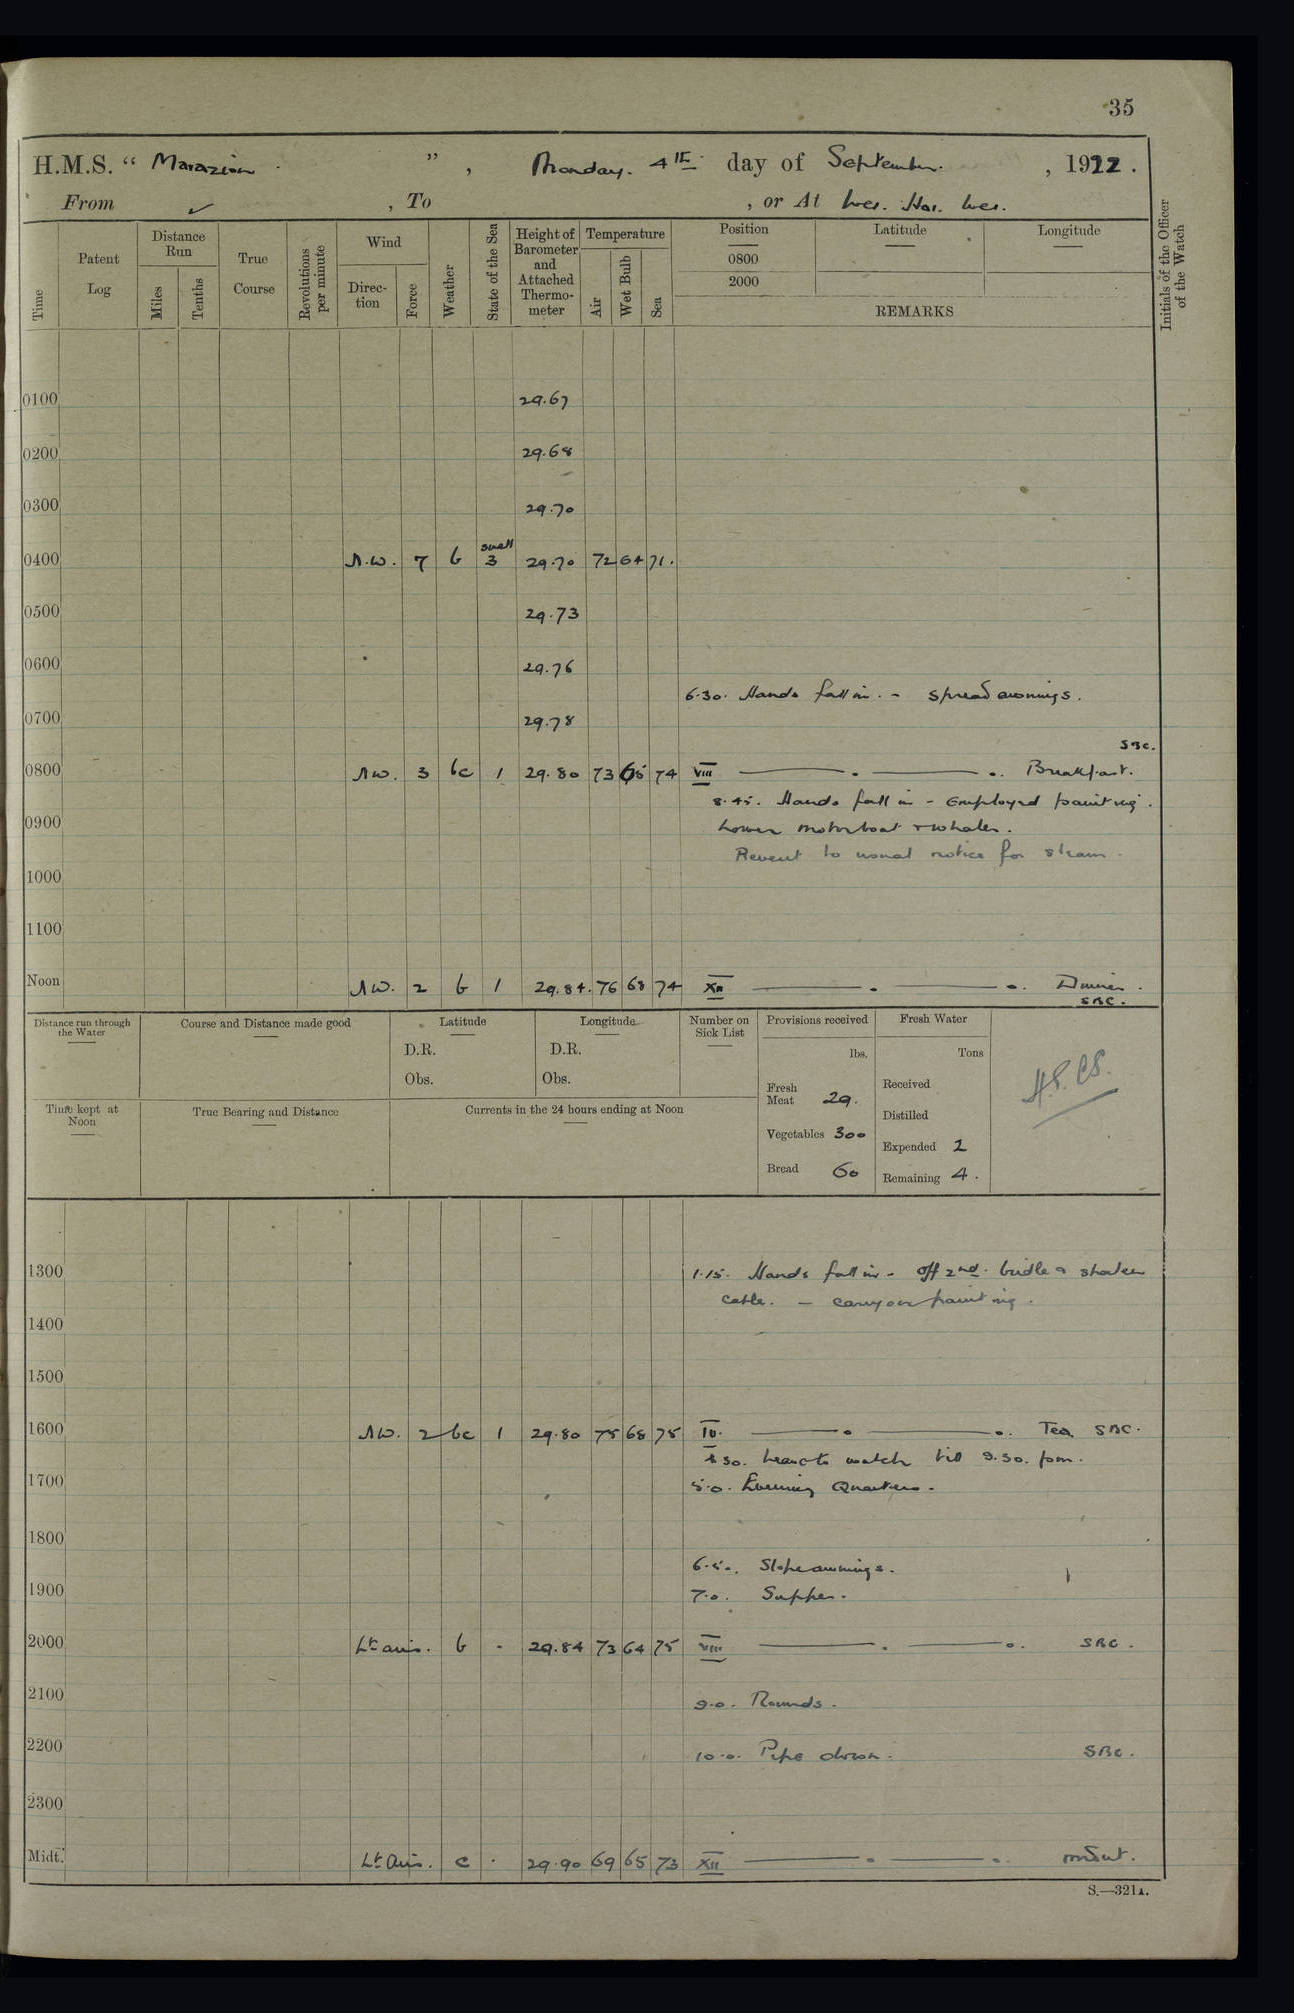 35
H.M.S. “ Marazion ”, Monday. 4th day of September. , 1922.
From ✓ , To , or At Wei. Hai. Wei.
Time
Patent Log
Distance Run
Miles
Tenths
True Course
Revolutions per minute
Wind
Direction
Force
Weather
State of the Sea
Height of Barometer and Attached Thermometer
Temperature
Air
Wet Bulb
Sea
Position
0800
2000
Latitude
Longitude
REMARKS
Initials of the Officer of the Watch
0100 29.67
0200 29.68
0300 29.70
0400 N.W. 7 b swell 3 29.70 72 64 71.
0500 29.73
0600 29.76
6.30. Hands fall in. - spread awnings.
0700 29.78
SBC.
0800 NW. 3 bc 1 29.80 73 65 74 VIII Breakfast.
8.45. Hands fall in - Employed painting.
0900 Lower motorboat + whaler.
Revert to usual notice for steam.
1000
1100
Noon NW. 2 b 1 29.84. 76 68 74 XII Dinner.
SBC.
Distance run through the Water
Course and Distance made good
Latitude
D.R.
Obs.
Longitude
D.R.
Obs.
Number on Sick List
Provisions received
lbs.
Fresh Meat 29.
Vegetables 300
Bread 60
Fresh Water
Tons
Received
Distilled
Expended 2
Remaining 4.
Time kept at Noon
True Bearing and Distance
Currents in the 24 hours ending at Noon
1300 1.15. Hands fall in - off 2nd. bridle &
cable. - carry on painting.
1400
1500
1600 NW. 2 bc 1 29.80 75 68 75 IV. Tea SBC.
4.30. Leave to watch till 9.30. pm.
1700 5.0. Evening Quarters.
1800
6.50. Slope awnings.
1900 7.0. Supper.
2000 Lt airs. b - 29.84 73 64 75 VIII SBC.
2100 9.0. Rounds.
2200 10.0. Pipe down. SBC.
2300
Midt. Lt Airs. c . 29.90 69 65 73 XII
S.—321A.